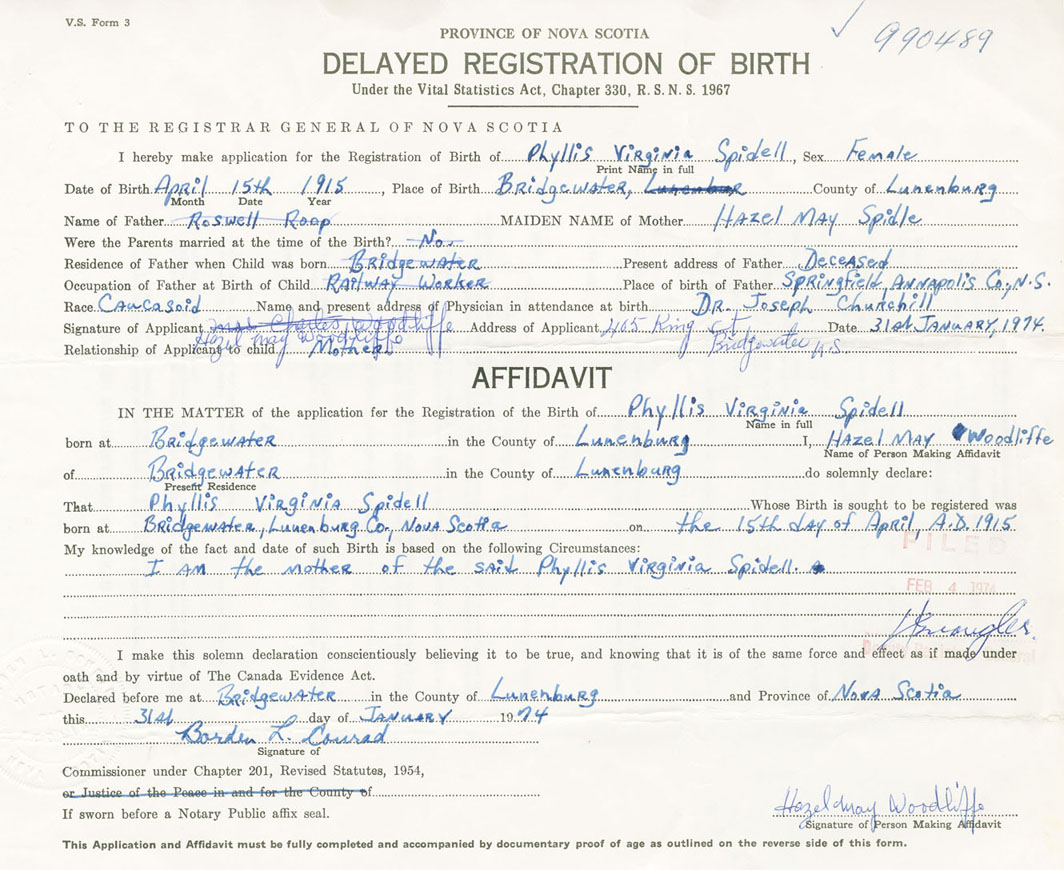 V.S. Form 3
990489
PROVINCE OF NOVA SCOTIA
DELAYED REGISTRATION OF BIRTH
Under the Vital Statistics Act, Chapter 330, R. S. N. S. 1967
TO THE REGISTRAR GENERAL OF NOVA SCOTIA
I hereby make application for the Registration of Birth of Phyllis Virginia Spidell, Sex Female
Print Name in full
Date of Birth April 15th 1915, Place of Birth Bridgewater, Lunenbur County of Lunenburg
Month Date Year
Name of Father Roswell Roop MAIDEN NAME of Mother Hazel May Spidle
Were the Parents married at the time of the Birth? No
Residence of Father when Child was born Bridgewater Present address of Father Deceased
Occupation of Father at Birth of Child Railway Worker Place of birth of Father Springfield, Annapolis Co., N.S.
Race Caucasoid Name and present address of Physician in attendance at birth Dr. Joseph Churchill
Signature of Applicant Mrs Charles Woodliffe Address of Applicant 405 King St Date 31st January, 1974.
Hazel may Woodliffe Bridgewater N.S.
Relationship of Applicant to child Mother
AFFIDAVIT
IN THE MATTER of the application for the Registration of the Birth of Phyllis Virginia Spidell
Name in full
born at Bridgewater in the County of Lunenburg I, Hazel May Woodliffe
Name of Person Making Affidavit
of Bridgewater in the County of Lunenburg do solemnly declare:
Present Residence
That Phyllis Virginia Spidell Whose Birth is sought to be registered was
born at Bridgewater, Lunenburg Co., Nova Scotia on the 15th day of April, A.D. 1915
My knowledge of the fact and date of such Birth is based on the following Circumstances:
FILED
I am the mother of the said Phyllis Virginia Spidell.
FEB 4 1974
I make this solemn declaration conscientiously believing it to be true, and knowing that it is of the same force and effect as if made under
oath and by virtue of The Canada Evidence Act.
Declared before me at Bridgewater in the County of Lunenburg and Province of Nova Scotia
this 31st day of January 1974
Borden L. Conrad
Signature of
Commissioner under Chapter 201, Revised Statutes, 1954,
or Justice of the Peace in and for the County of
If sworn before a Notary Public affix seal.
Hazel may Woodliffe
Signature of Person Making Affidavit
This Application and Affidavit must be fully completed and accompanied by documentary proof of age as outlined on the reverse side of this form.